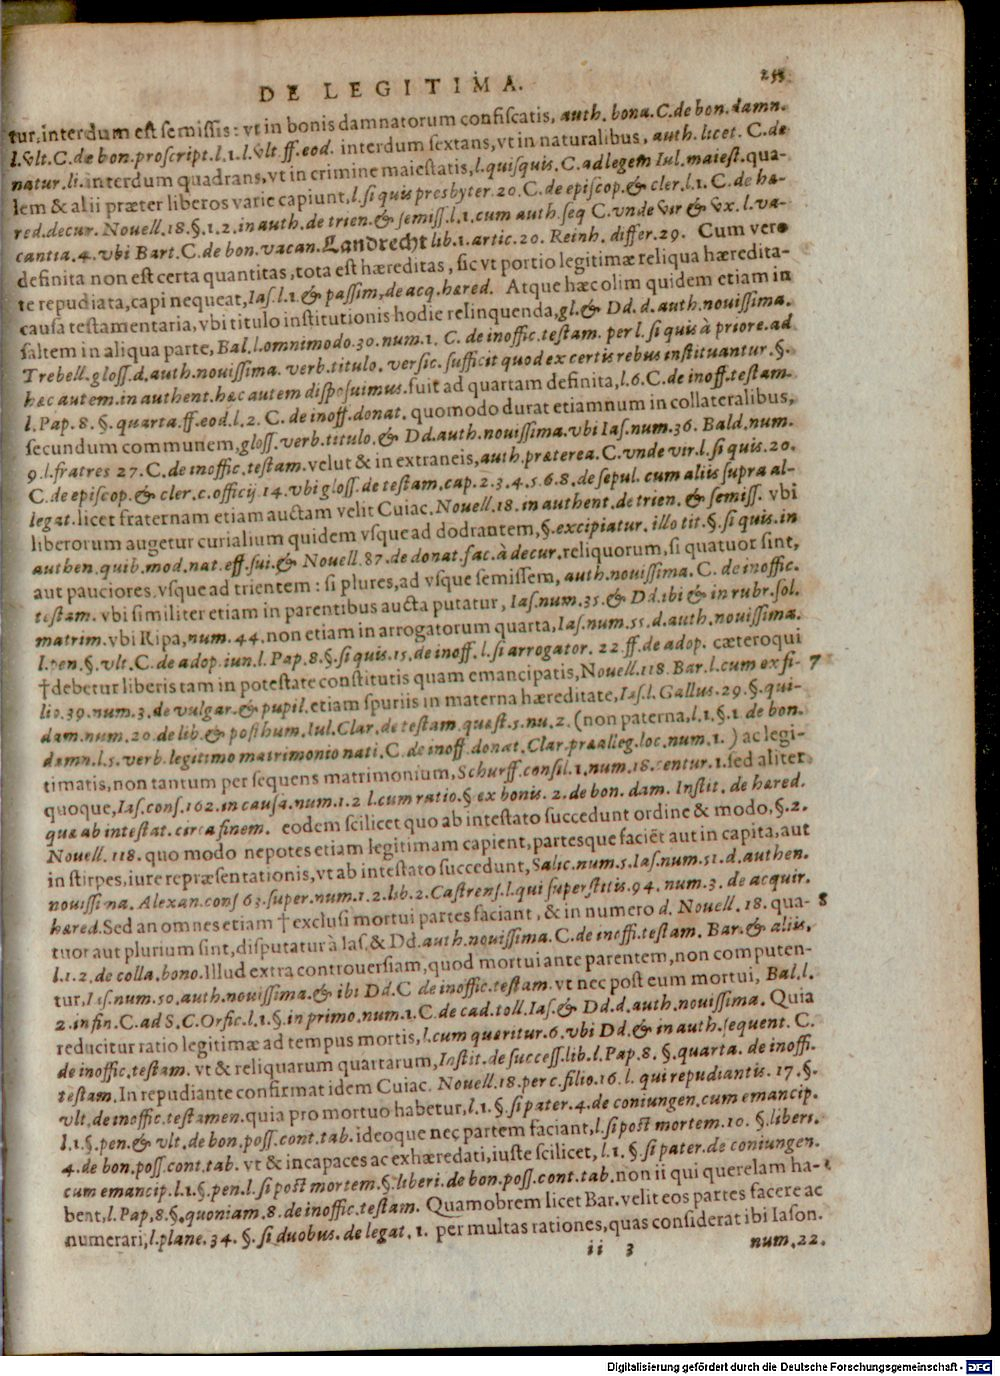 DE LEGITIMA.
tur, interdum est semissis: vt in bonis damnatorum confiscatis, auth. bona. C. de bon. damn.
l. vlt. C. de bon. proscript. l. 1. l. vlt. ff. eod. interdum sextans, vt in naturalibus, auth. licet. C. de
natur. li. interdum quadrans, vt in crimine maiestatis, l. quisquis. C. ad legem Iul. maiest. qua-
lem & alii præter liberos varie capiunt, l. si quis presbyter. 20. C. de episcop. & cler. l. 1. C. de hæ-
red. decur. Nouell. 18. §. 1. 2. in auth. de trien. & semiss. l. 1. cum auth. seq C. vnde vir & vx. l. va-
cantia. 4. vbi Bart. C. de bon. vacan. Landrecht lib. 1. artic. 20. Reinh. differ. 29. Cum vero
definita non est certa quantitas, tota est hæreditas, sic vt portio legitimæ reliqua hæredita-
te repudiata, capi nequeat, Ias. l. 1. & passim, de acq. hæred. Atque hæc olim quidem etiam in
causa testamentaria, vbi titulo institutionis hodie relinquenda, gl. & Dd. d. auth. nouissima.
saltem in aliqua parte, Bal. l. omnimodo. 30. num. 1. C. de inoffic. testam. per l. si quis à priore. ad
Trebell. gloss. d. auth. nouissima. verb. titulo. versic. sufficit quod ex certis rebus instituantur. §.
hæc autem. in authent. hæc autem disposuimus. fuit ad quartam definita, l. 6. C. de inoff. testam.
l. Pap. 8. §. quarta. ff. eod. l. 2. C. de inoff. donat. quomodo durat etiamnum in collateralibus,
secundum communem, gloss. verb. titulo. & Dd. auth. nouissima. vbi Ias. num. 36. Bald. num.
9. l. fratres 27. C. de inoffic. testam. velut & in extraneis, auth. præterea. C. vnde vir. l. si quis. 20.
C. de episcop. & cler. c. officij 14. vbi gloss. de testam. cap. 2. 3. 4. 5. 6. 8. de sepul. cum aliis supra al-
legat. licet fraternam etiam auctam velit Cuiac. Nouell. 18. in authent. de trien. & semiss. vbi
liberorum augetur curialium quidem vsque ad dodrantem, §. excipiatur. illo tit. §. si quis. in
authen. quib. mod. nat. eff. sui. & Nouell. 87. de donat. fac. à decur. reliquorum, si quatuor sint,
aut pauciores, vsque ad trientem: si plures, ad vsque semissem, auth. nouissima. C. de inoffic.
testam. vbi similiter etiam in parentibus aucta putatur, Ias. num. 35. & Dd. ibi & in rubr. sol.
matrim. vbi Ripa, num. 44. non etiam in arrogatorum quarta, Ias. num. 55. d. auth. nouissima.
l. pen. §. vlt. C. de adop. iun. l. Pap. 8. §. si quis. 15. de inoff. l. si arrogator. 22 ff. de adop. cæteroqui
†debetur liberis tam in potestate constitutis quam emancipatis, Nouell. 118. Bar. l. cum ex fi- 7
lio. 39. num. 3. de vulgar. & pupil. etiam spuriis in materna hæreditate, Ias. l. Gallus. 29. §. qui-
dam. num. 20. de lib. & posthum. Iul. Clar. de testam. quæst. 5. nu. 2. (non paterna, l. 1. §. 1. de bon.
damn. l. 5. verb. legitimo matrimonio nati. C. de inoff. donat. Clar. præalleg. loc. num. 1. ) ac legi-
timatis, non tantum per sequens matrimonium, Schurff. consil. 1. num. 18. centur. 1. sed aliter
quoque, Ias. cons. 162. in causa. num. 1. 2 l. cum ratio. § ex bonis. 2. de bon. dam. Instit. de hæred.
quæ ab intestat. circa finem. eodem scilicet quo ab intestato succedunt ordine & modo, §. 2.
Nouell. 118. quo modo nepotes etiam legitimam capient, partesque faciēt aut in capita, aut
in stirpes, iure repræsentationis, vt ab intestato succedunt, Salic. num. 5. Ias. num. 51. d. authen.
nouissima. Alexan. cons 63. super. num. 1. 2. lib. 2. Castrens. l. qui superstitis. 94. num. 3. de acquir.
hæred. Sed an omnes etiam † exclusi mortui partes faciant, & in numero d. Nouell. 18. qua- 8
tuor aut plurium sint, disputatur à Ias. & Dd. auth. nouissima. C. de inoffi. testam. Bar. & aliis,
l. 1. 2. de colla. bono. Illud extra controuersiam, quod mortui ante parentem, non computen-
tur, Ias. num. 50. auth. nouissima. & ibi Dd. C de inoffic. testam. vt nec post eum mortui, Bal. l.
2. in fin. C. ad S. C. Orfic. l. 1. §. in primo. num. 1. C. de cad. toll. Ias. & Dd. d. auth. nouissima. Quia
reducitur ratio legitimæ ad tempus mortis, l. cum quæritur. 6. vbi Dd. & in auth. sequent. C.
de inoffic. testam. vt & reliquarum quartarum, Instit. de success. lib. l. Pap. 8. §. quarta. de inoffi.
testam. In repudiante confirmat idem Cuiac. Nouell. 18. per c. filio. 16. l. qui repudiantis. 17. §.
vlt. de inoffic. testamen. quia pro mortuo habetur, l. 1. §. si pater. 4. de coniungen. cum emancip.
l. 1. §. pen. & vlt. de bon. poss. cont. tab. ideoque nec partem faciant, l. si post mortem. 10. §. liberi.
4. de bon. poss. cont. tab. vt & incapaces ac exhæredati, iuste scilicet, l. 1. §. si pater. de coniungen.
cum emancip. l. 1. §. pen. l. si post mortem. §. liberi. de bon. poss. cont. tab. non ii qui querelam ha-
bent, l. Pap. 8. §. quoniam. 8. de inoffic. testam. Quamobrem licet Bar. velit eos partes facere ac
numerari, l. plane. 34. §. si duobus. de legat. 1. per multas rationes, quas considerat ibi Iason.
ii 3 num. 22.
Digitalisierung gefördert durch die Deutsche Forschungsgemeinschaft - DFG